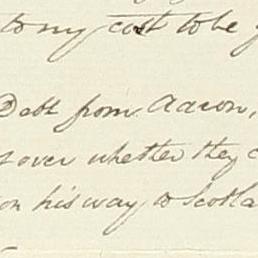 to my cost to be
Debt from Aaron,
over whether they
on his way to Scotla